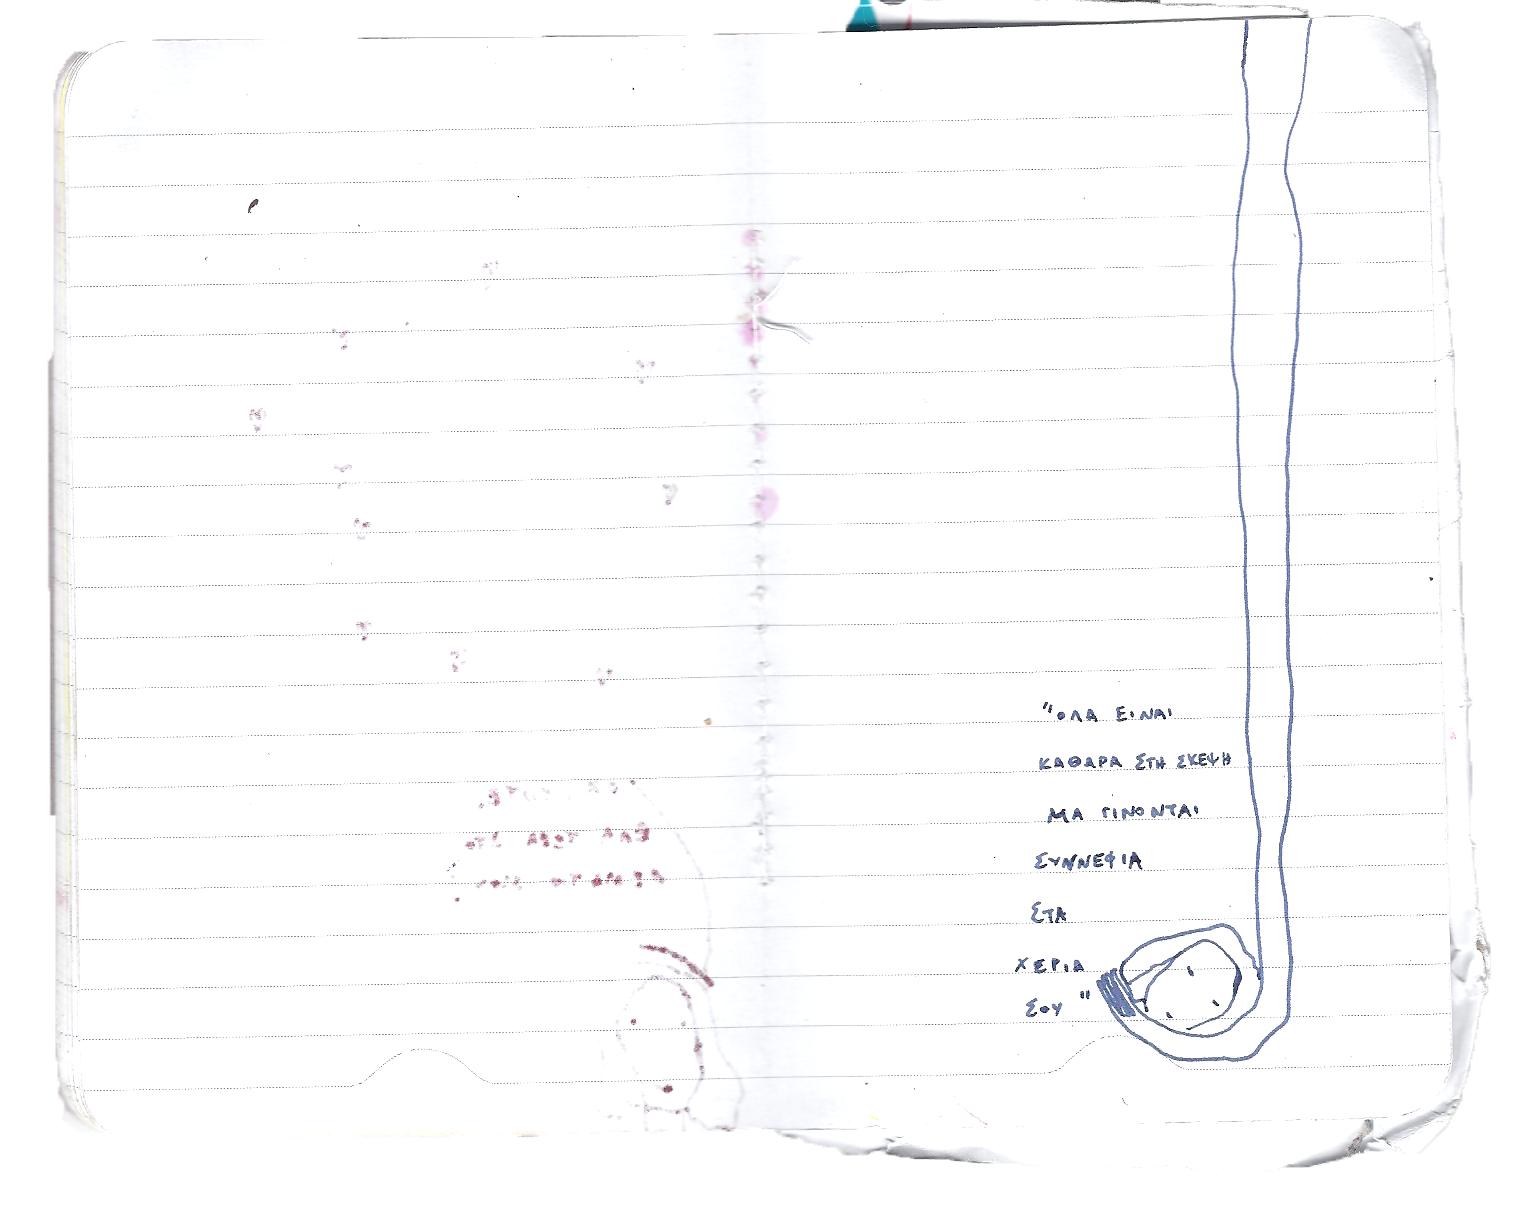 "ΟΛΑ ΕΙΝΑΙ
ΚΑΘΑΡΑ ΣΤΗ ΣΚΕΨΗ
ΜΑ ΓΙΝΟΝΤΑΙ
ΣΥΝΝΕΦΙΑ
ΣΤΑ
ΧΕΡΙΑ
ΣΟΥ"